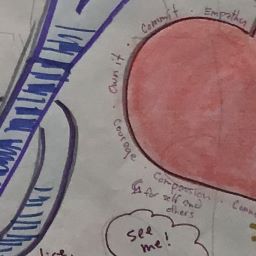 Commit · Empathy
· Own it ·
Courage
· Compassion ·
& for self and
others
see
me!